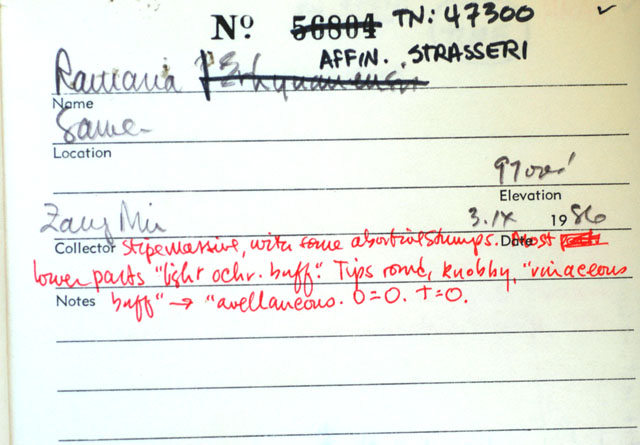 Nº 56804 TN: 47300
AFFIN. STRASSERI
Ramaria
Name
Same
Location
9700'
Elevation
Zang Mu
3.IX 1986
Collector Stipe massive, with some abortive stumps. Date Most
lower parts "light ochr. buff". Tips round, knobby, "vinaceous
Notes buff" → "avellaneous. O=O. T=O.